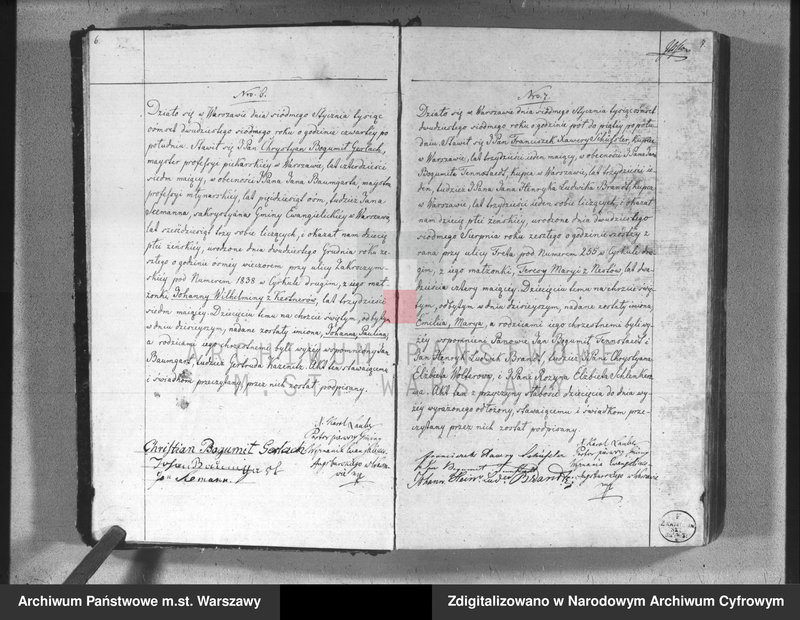 6.
Nro. 6.
Działo się w Warszawie dnia siódmego Stycznia tysiąc
ośmset dwudziestego siódmego roku o godzinie czwartej po
południu. Stawił się JPan Chrystyan Bogumił Gerlach,
mayster professyi piekarskiey w Warszawie, lat czterdzieści
siedm maiący, w obecności JPana Jana Baumgarta, maystra
professyi młynarskiey, lat pięćdziesiąt ośm, tudzież Jana
Seemanna, zakrystyana Gminy Ewangielickiey w Warszawie,
lat sześćdziesiąt trzy sobie liczących, i okazał nam dziecię
płci żeńskiey, urodzone dnia dwudziestego Grudnia roku ze-
szłego o godzinie ósmey wieczorem przy ulicy Zakroczym-
skiey pod Numerem 1838 w Cyrkule drugim, z iego mał-
żonki Johanny Wilhelminy z Kestnerów, lat trzydzieści
siedm maiącey. Dziecięciu temu na chrzcie świętym, odbytym
w dniu dzisieyszym, nadane zostały imiona, Johanna Paulina,
a rodzicami iego chrzestnemi byli wyżey wspomniony Jan
Baumgart, tudzież Gertruda. Akt ten stawaiącemu
i świadkom przeczytany, przez nich został podpisany.
X. Karol Lauber
Pastor pierwszy Gminy
Wyznania Ewangelicko
Augsburskiego w Warsza-
wie
Christian Bogumił Gerlach
Jan Seemann.
7.
Nro. 7.
Działo się w Warszawie dnia siódmego Stycznia tysiąc ośmset
dwudziestego siódmego roku o godzinie pół do piątey po połu-
dniu. Stawił się JPan Franciszek Xawery Schüfster, kupiec
w Warszawie, lat trzydzieści ieden maiący, w obecności JPana Jana
Bogumiła Tennstaedt, kupca w Warszawie, lat trzydzieści ie-
den, tudzież JPana Jana Henryka Ludwika Brandt, kupca
w Warszawie, lat trzydzieści ieden sobie liczących, i okazał
nam dziecię płci żeńskiey, urodzone dnia dwudziestego
siódmego Sierpnia roku zeszłego o godzinie szóstey z
rana przy ulicy Freta pod Numerem 255 w Cyrkule dru-
gim, z iego małżonki, Teressy Maryi z Nestów, lat dwa-
dzieścia cztery maiącey. Dziecięciu temu na chrzcie świę-
tym, odbytym w dniu dzisieyszym, nadane zostały imiona,
Emilia, Marya, a rodzicami iego chrzestnemi byli wy-
żey wspomnieni Panowie Jan Bogumił Tennstaedt i
Jan Henryk Ludwik Brandt, tudzież JPani Chrystyana
Elżbieta Wolterowa, i JPani Rozyna Elżbieta Schlenker-
. Akt ten z przyczyny słabości dziecięcia do dnia wy-
żey wyrażonego odłożony, stawaiącemu i świadkom prze-
czytany przez nich został podpisany.
X. Karol Lauber
Pastor pierwszy Gminy
Wyznania Ewangelicko-
Augsburskiego w Warszawie
Franciszek Xawery Schüfster
Johann Heinr. Ludw. Brandt
ARCHIWUM PAŃSTWOWE
M.ST. WARSZAWY
Archiwum Państwowe m.st. Warszawy
Zdigitalizowano w Narodowym Archiwum Cyfrowym